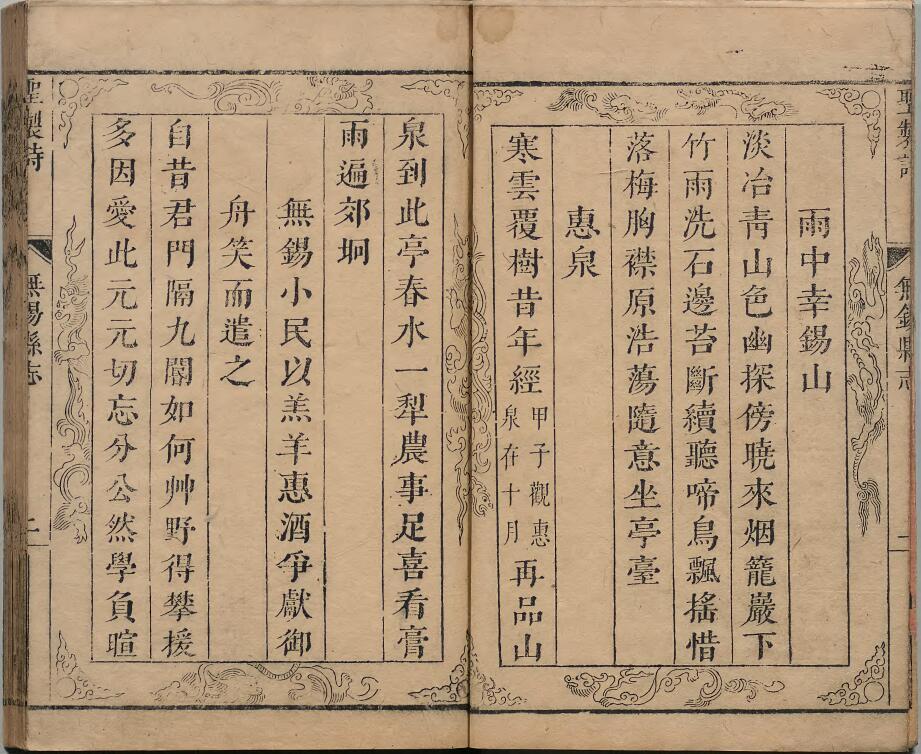 聖製詩
無錫縣志
雨中幸錫山
淡冶靑山色幽探傍曉來烟籠巖下
竹雨洗石邊苔斷續聽啼鳥飄搖惜
落梅胸襟原浩蕩隨意坐亭臺
惠泉
寒雲覆樹昔年經甲子觀惠泉在十月再品山
泉到此亭春水一犁農事足喜看膏
雨遍郊坰
無錫小民以羔羊惠酒爭獻御
舟笑而遣之
自昔君門隔九閽如何艸野得攀援
多因愛此元元切忘分公然學負暄
聖製詩
無錫縣志